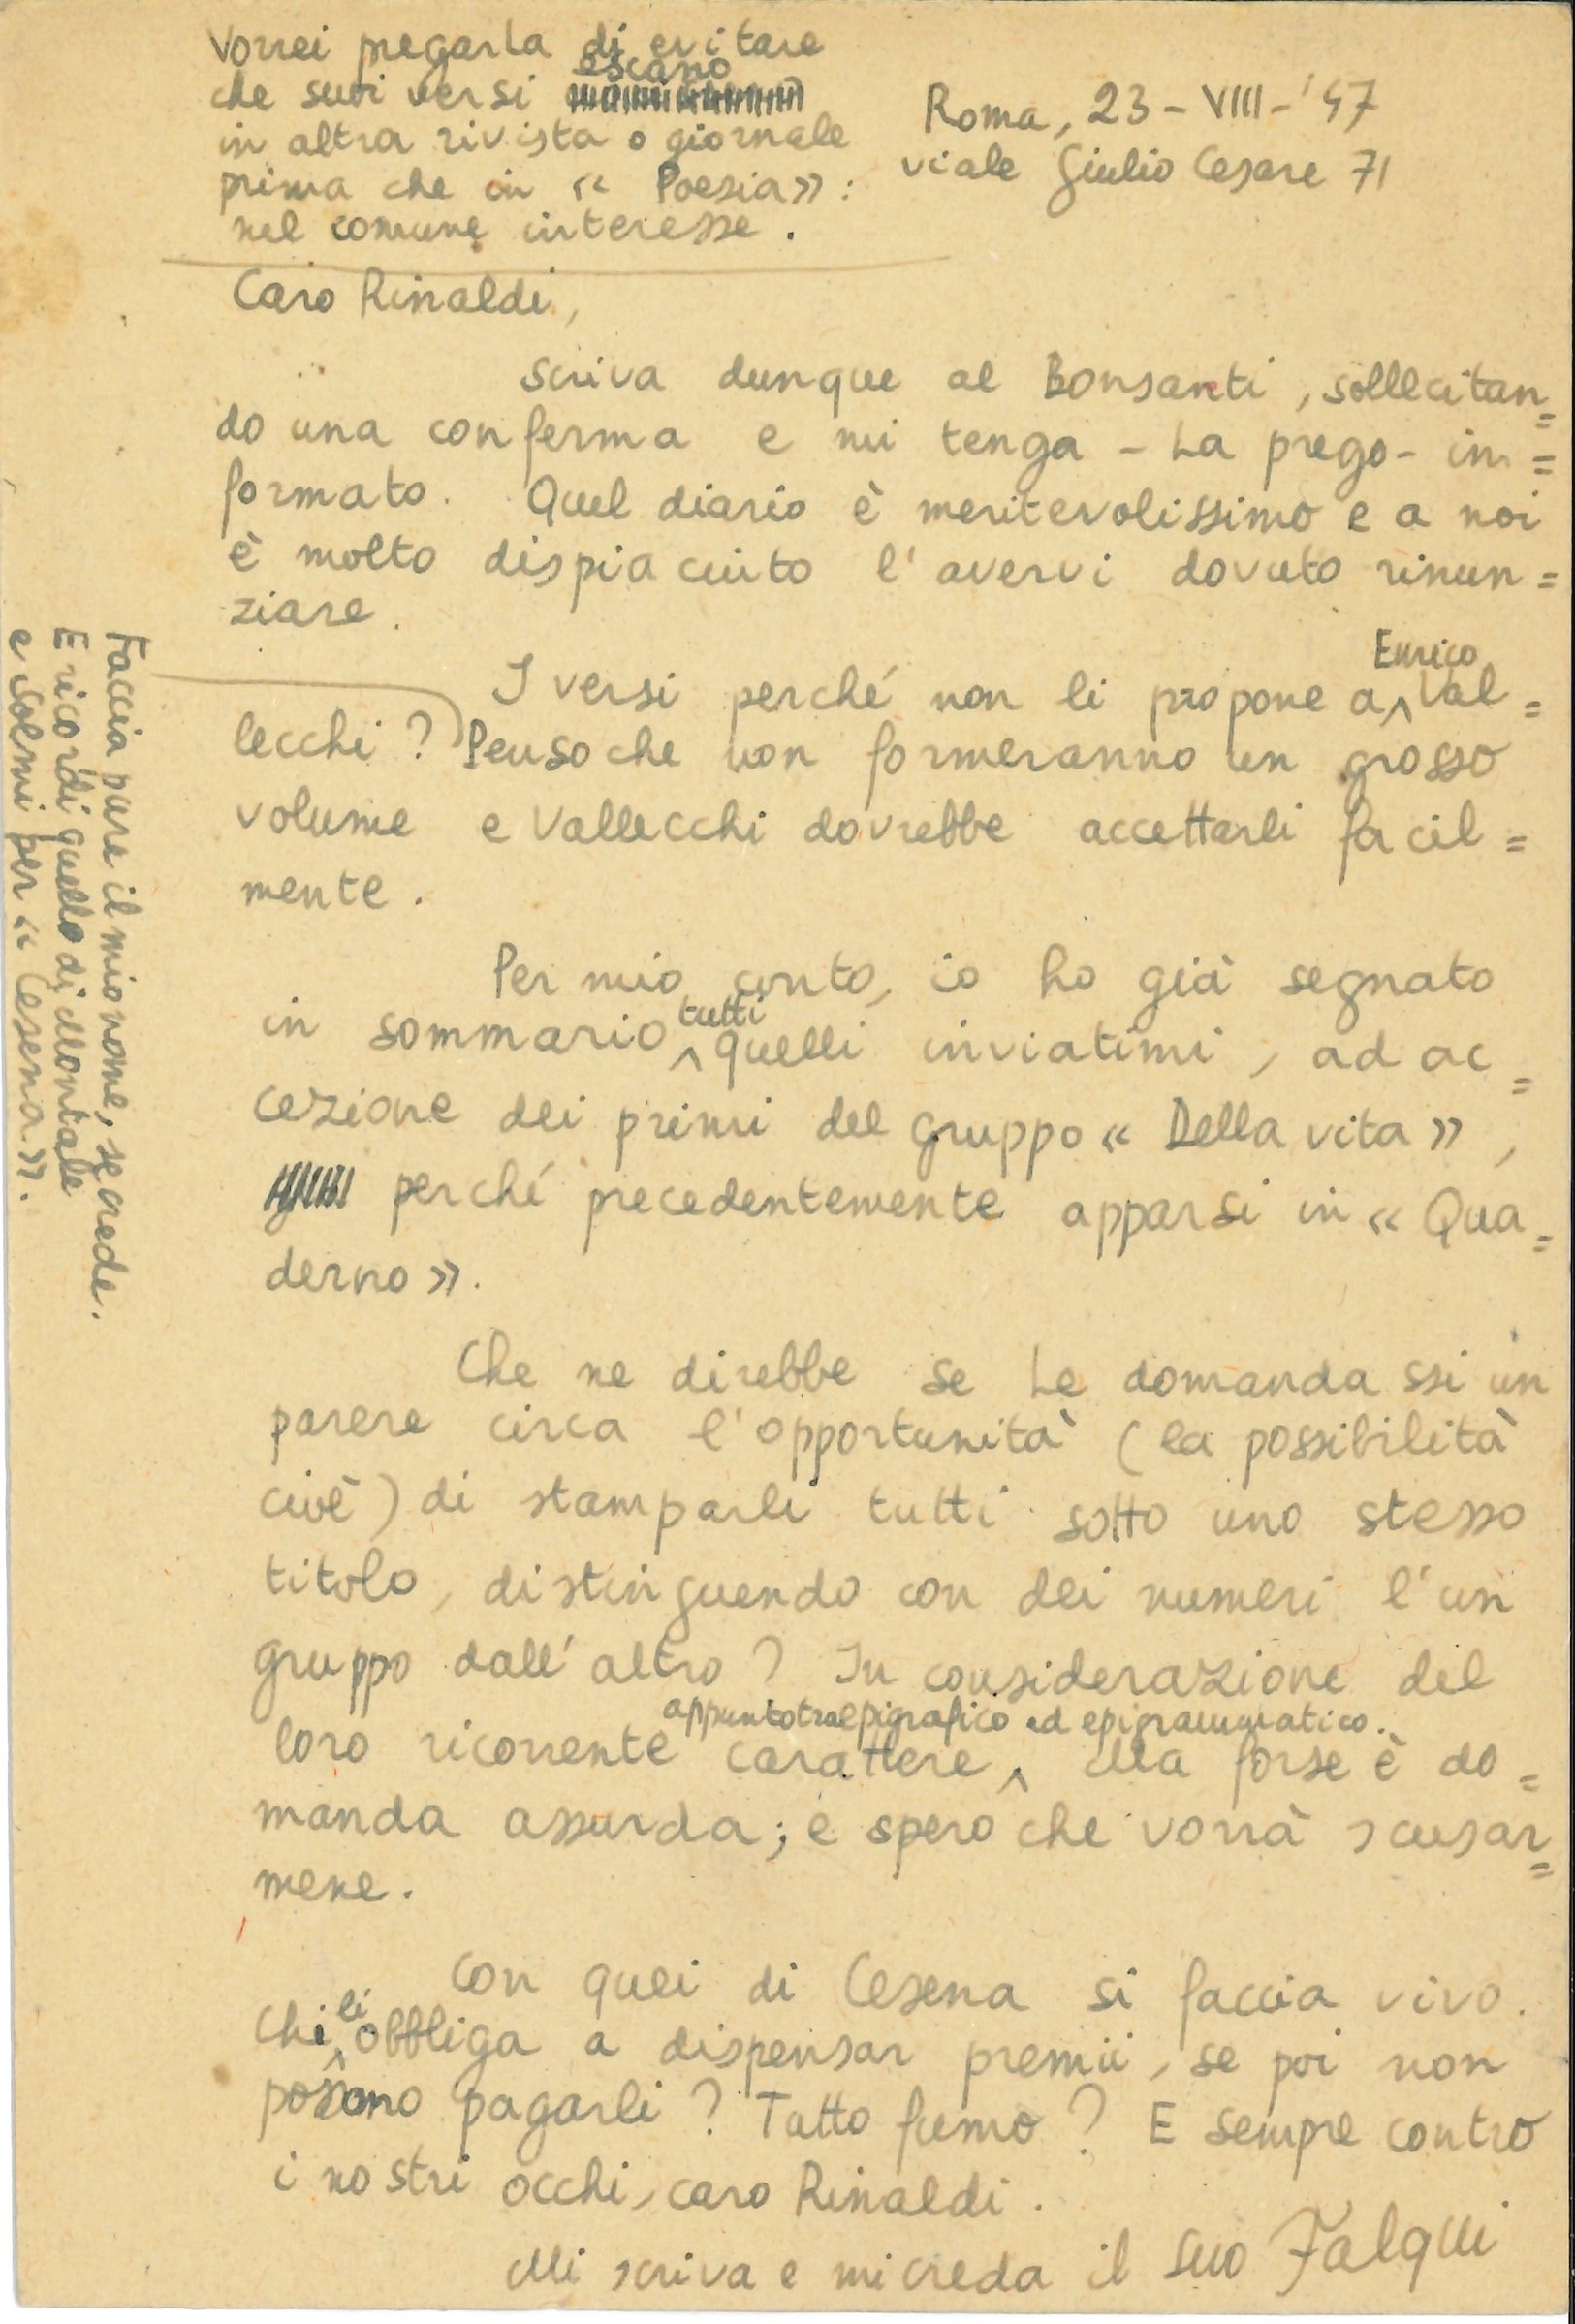 Vorrei pregarLa di evitare
che suoi versi escano
in altra rivista o giornale
prima che in « Poesia» :
nel comune interesse.
Roma, 23 - VIII - '47
viale Giulio Cesare 71
Caro Rinaldi,
scriva dunque al Bonsanti, sollecitan=
do una conferma e mi tenga - La prego - in=
formato. Quel diario è meritevolissimo e a noi
è molto dispiaciuto l'avervi dovuto rinun=
ziare.
I versi perché non li propone a Enrico Val=
lecchi? Penso che non formeranno un grosso
volume e Vallecchi dovrebbe accettarli facil=
mente.
Faccia pure il mio nome, se crede.
E ricordi quello di Montale
e Solmi per « Cesena».
Per mio conto, io ho già segnato
in sommario tutti quelli inviatimi, ad ac=
cezione dei primi del gruppo « Della vita»,
perché precedentemente apparsi in « Qua=
derno».
Che ne direbbe se Le domandassi un
parere circa l'opportunità (la possibilità
cioè) di stamparli tutti sotto uno stesso
titolo, distinguendo con dei numeri l'un
gruppo dall'altro? In considerazione del
loro ricorrente carattere appunto tra epigrafico ed epigrammatico. Ma forse è do=
manda assurda; e spero che vorrà scusar=
mene.
Con quei di Cesena si faccia vivo.
Chi li obbliga a dispensar premii, se poi non
possono pagarli? Tutto fumo? E sempre contro
i nostri occhi, caro Rinaldi.
Mi scriva e mi creda il suo Falqui